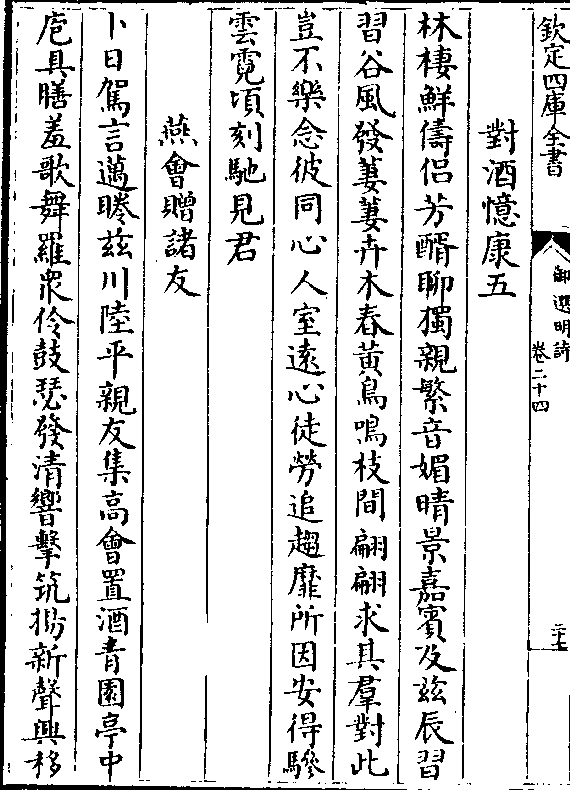 欽定四庫全書
御選明詩
卷二十四
對酒憶康五
林棲鮮儔侶芳醑聊獨親繁音媚晴景嘉賓及兹辰習
習谷風發萋萋卉木春黄鳥鳴枝間翩翩求其羣對此
豈不樂念彼同心人室遠心徒勞追趨靡所因安得驂
雲霓頃刻馳見君
燕會贈諸友
卜日駕言邁睠兹川陸平親友集高會置酒青園亭中
庖具膳羞歌舞羅衆伶鼓瑟發清響擊筑揚新聲興移